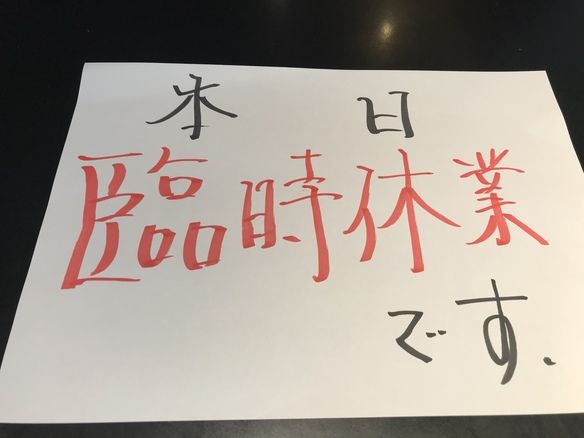 本日
臨時休業
です.